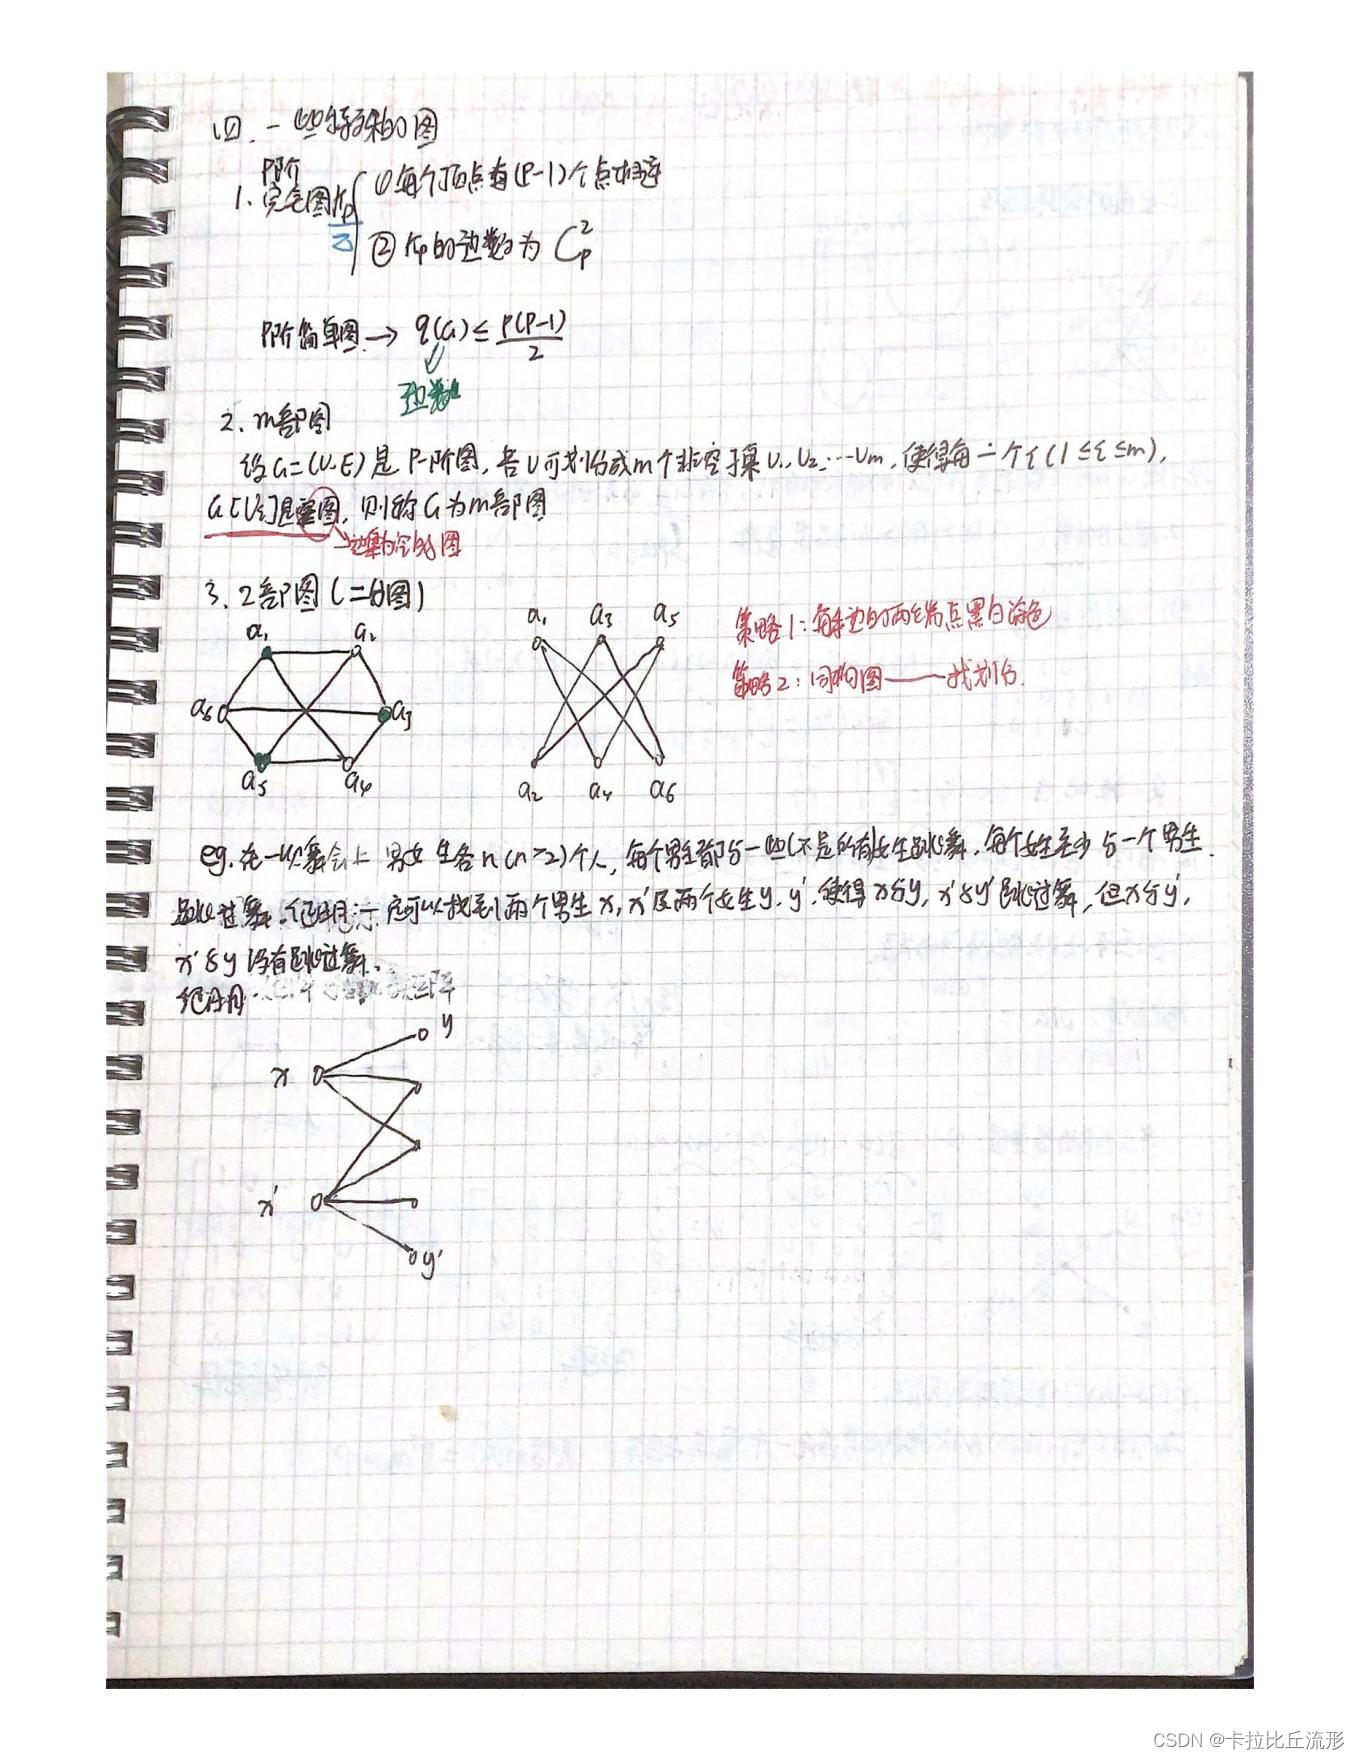 四.一些特殊的图
P阶
1.完全图Kp ①每个顶点有(P-1)个点相连
②Kp的边数为 C²p
P阶简单图 → q(G) ≤ P(P-1)/2
边数
2.m部图
设G=(V,E)是P-阶图,若V可划分成m个非空子集V₁,V₂,…Vm,使得每一个i(1≤i≤m),
G[Vi]是零图,则称G为m部图
→边集为空的图
3.2部图(二分图)
a₁ a₂ a₁ a₃ a₅ 策略1:每条边的两端点黑白涂色
a₆ a₃ 策略2:同构图——找划分.
a₅ a₄ a₂ a₄ a₆
eg.在一次舞会上 男女生各n(n≥2)个人,每个男生都与一些(不是所有)女生跳舞,每个女生至少与一个男生
跳过舞.证明:一定可以找到两个男生x,x'及两个女生y,y',使得x与y,x'与y'跳过舞,但x与y',
x'与y没有跳过舞.
证明:
y
x
x'
y'
CSDN @卡拉比丘流形